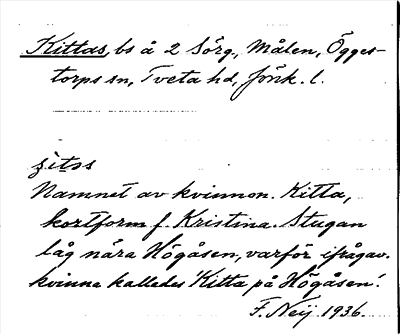 Kittas, bs å 2 Sörg., Målen, Ögges-
torps sn, Tveta hd, Jönk. l.
Namnet av kvinnon. Kitta,
kortform f. Kristina. Stugan
låg nära Högåsen, varför ifrågav.
kvinna kallades 'Kitta på Högåsen'.
F. Neij 1936.